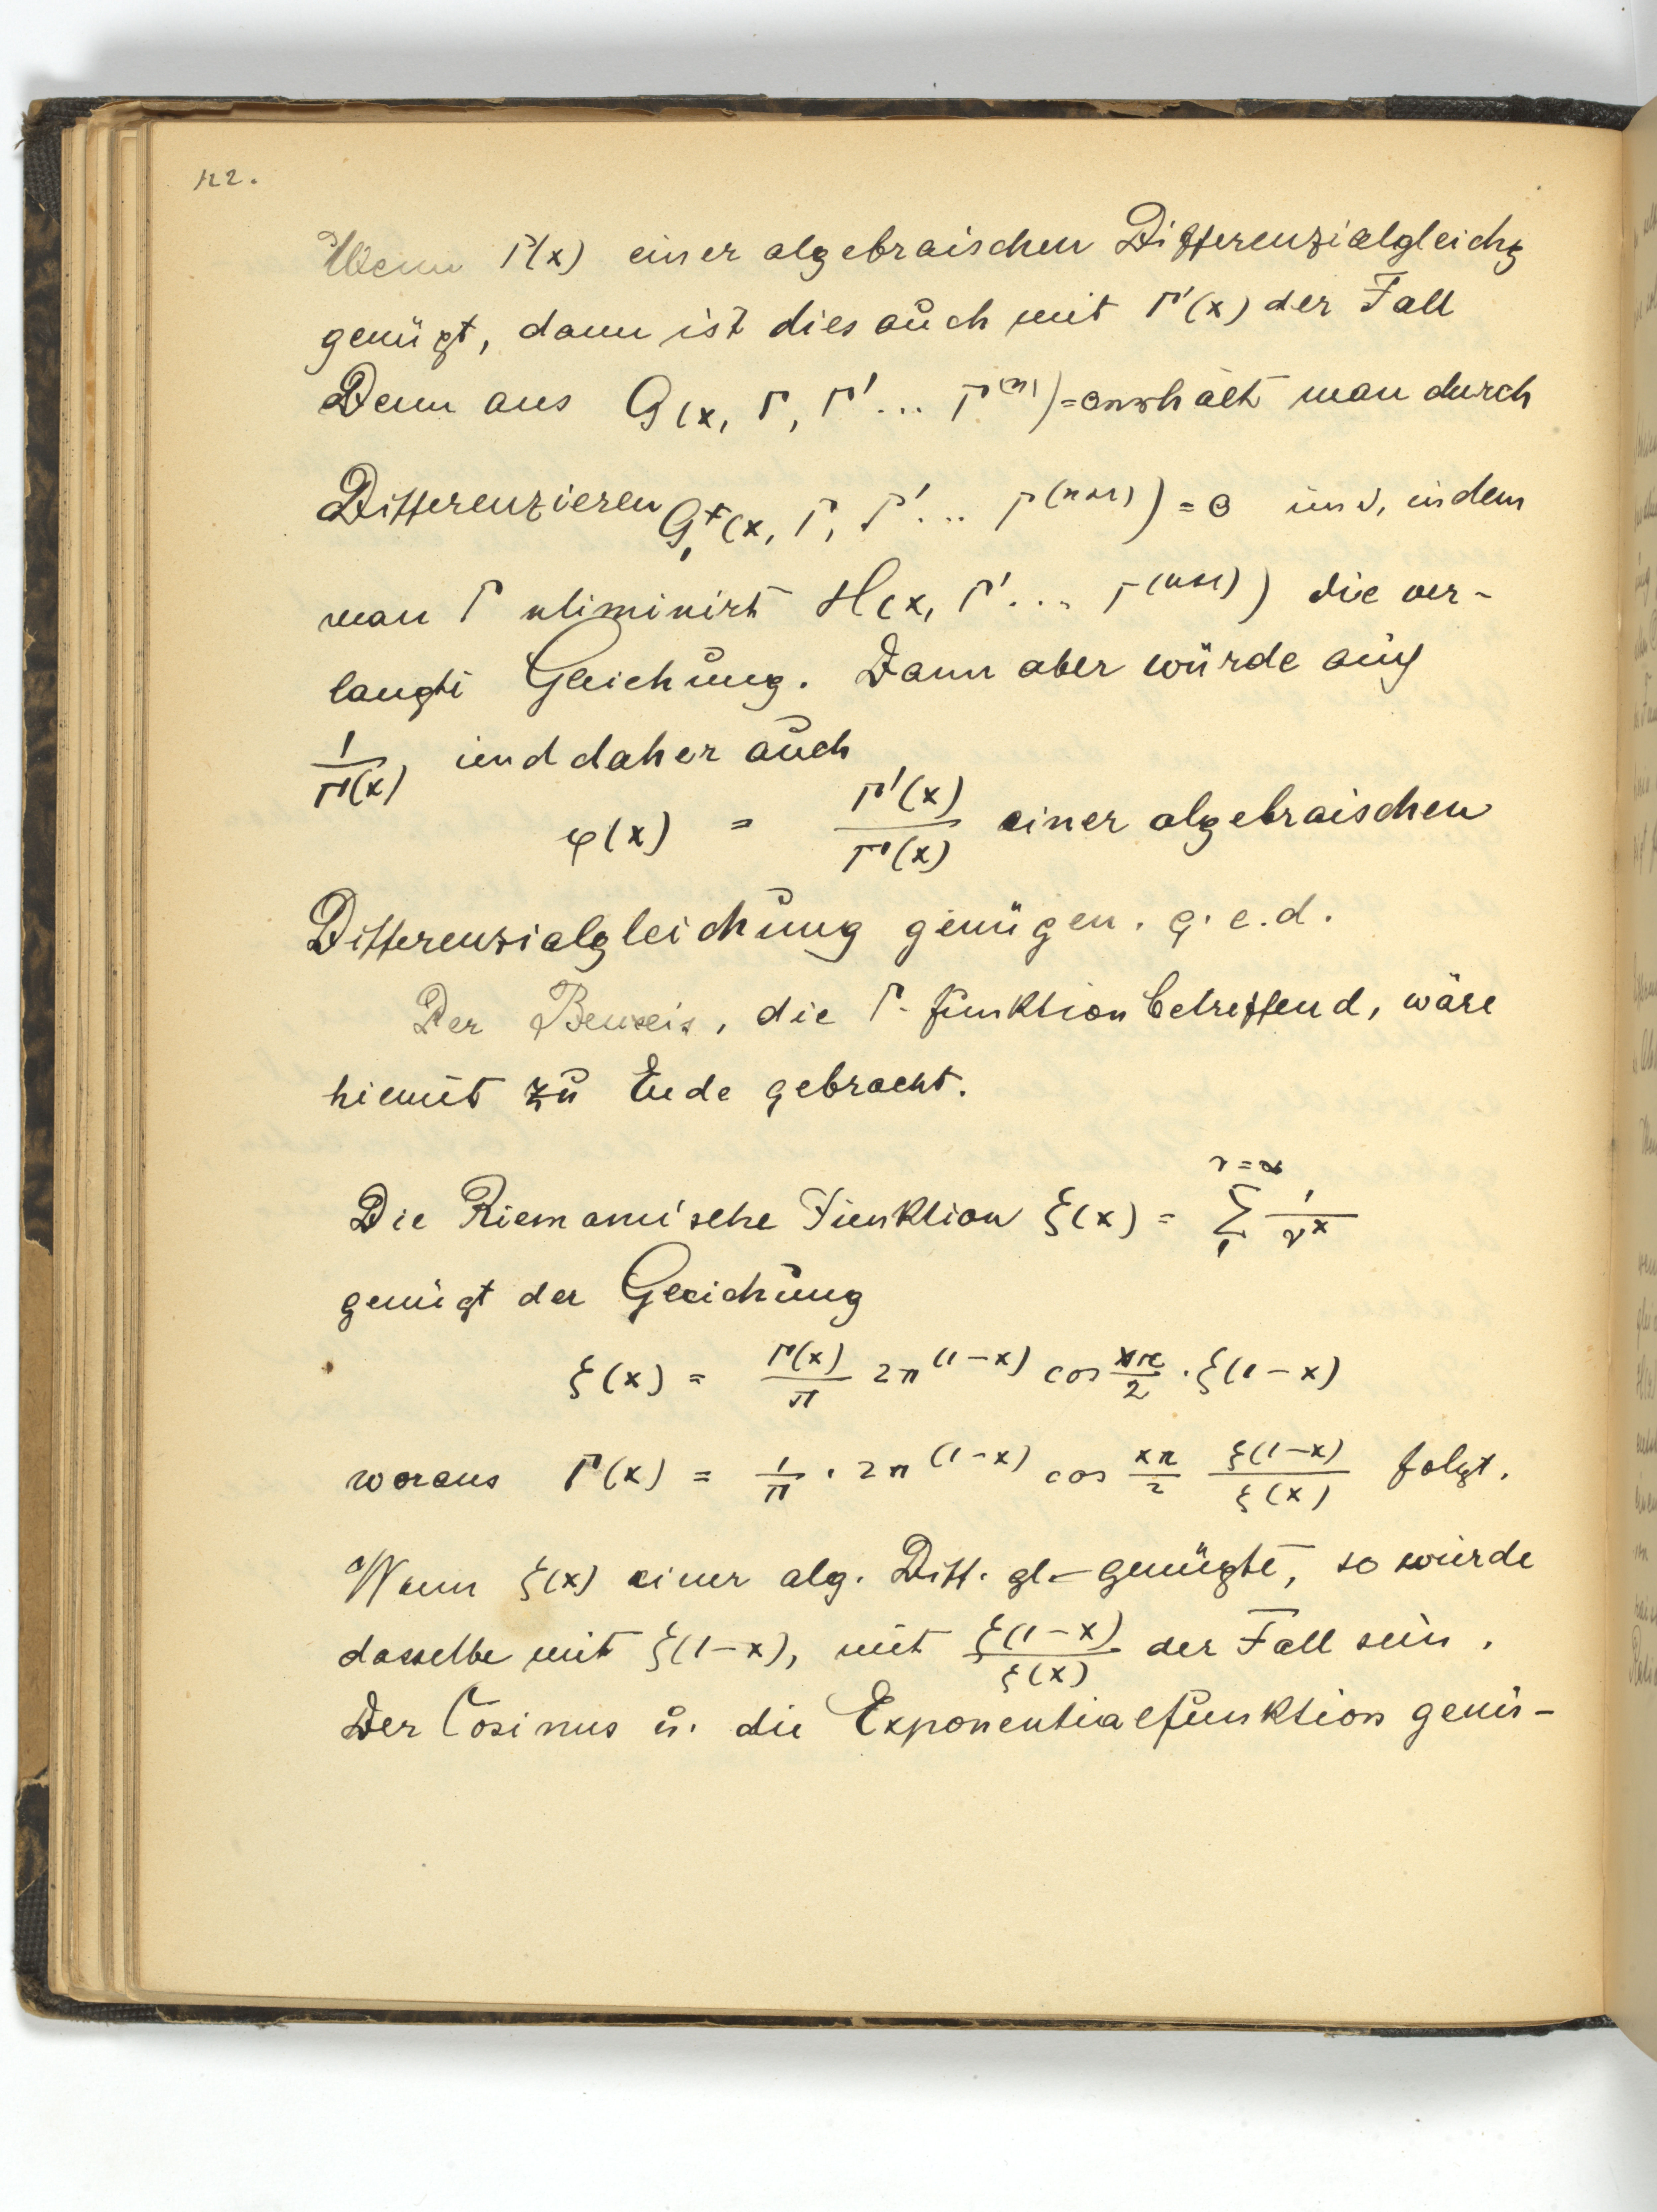 122.
Wenn Γ(x) einer algebraischen Differenzialgleichg
genügt, dann ist dies auch mit Γ'(x) der Fall
Denn aus G(x, Γ, Γ' ... Γ⁽ⁿ⁾) = 0 erhält man durch
Differenzieren G₁(x, Γ, Γ' ... Γ⁽ⁿ⁺¹⁾) = 0 und, indem
man Γ eliminirt H(x, Γ' ... Γ⁽ⁿ⁺¹⁾) die ver-
langte Gleichung. Dann aber würde auch
1/Γ(x) und daher auch
φ(x) = Γ'(x)/Γ(x) einer algebraischen
Differenzialgleichung genügen. q. e. d.
Der Beweis, die Γ-funktion betreffend, wäre
hiemit zu Ende gebracht.
Die Riemann'sche Funktion ξ(x) = ∑₁^{ν=∞} 1/ν^x
genügt der Gleichung
ξ(x) = Γ(x)/π 2π^(1-x) cos xπ/2 · ξ(1-x)
woraus Γ(x) = 1/π · 2π^(1-x) cos xπ/2 ξ(1-x)/ξ(x) folgt.
Wenn ξ(x) einer alg. Diff. gl- genügte, so würde
dasselbe mit ξ(1-x), mit ξ(1-x)/ξ(x) der Fall sein.
Der Cosinus u. die Exponentialfunktion genü-